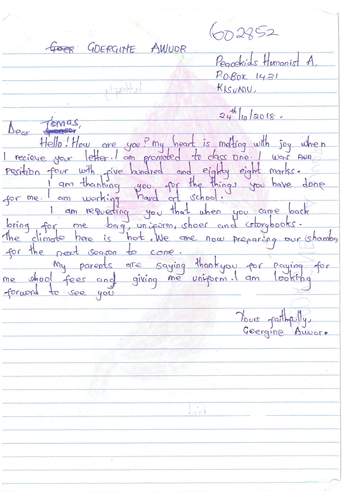 602852
GOERGINE AWUOR
Peacekids Humanist A,
P.O BOX 1421
KISUMU,
24th/10/2018.
Dear Tomas,
Hello! How are you? my heart is malting with joy when
I recieve your letter. I am promoted to class one. I was
Position four with five hundred and eighty eight marks.
I am thanking you for the things you have done
for me. I am working hard at school.
I am requesting you that when you came back
bring for me bag, uniform, shoes and cstorybooks.
The climate here is hot. We are now preparing our shamba
for the next season to come.
My parents are saying thankyou for paying for
me shool fees and giving me uniform. I am looking
forward to see you
Yours faithfully,
Goergine Awuor.